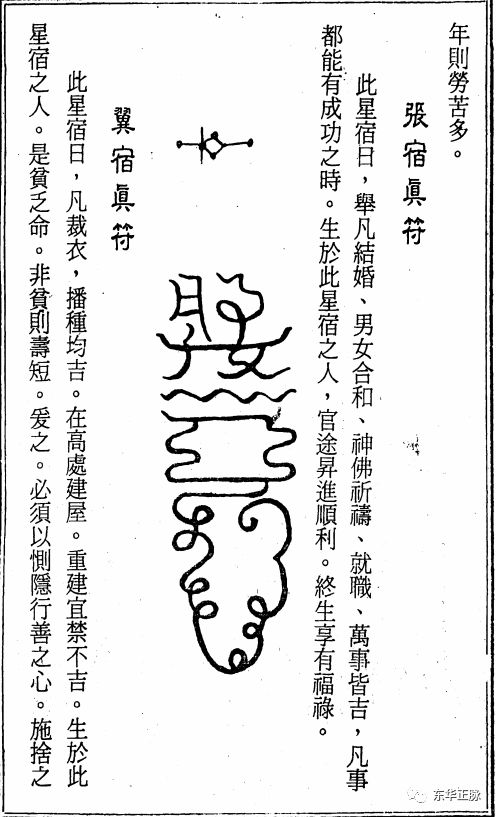 年則勞苦多。
張宿眞符
此星宿日，舉凡結婚、男女合和、神佛祈禱、就職、萬事皆吉，凡事
都能有成功之時。生於此星宿之人，官途昇進順利。終生享有福祿。
翼宿眞符
此星宿日，凡裁衣，播種均吉。在高處建屋。重建宜禁不吉。生於此
星宿之人。是貧乏命。非貧則壽短。爰之。必須以惻隱行善之心。施捨之
东华正脉